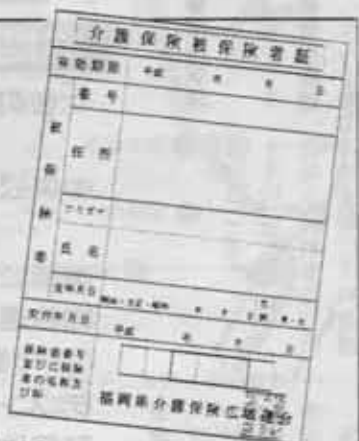 介護保険被保険者証
有効期限 平成 年 月 日
番号
被保険者
住所
フリガナ
氏名
生年月日 明治・大正・昭和 年 月 日 性別 男・女
交付年月日 平成 年 月 日
保険者番号
並びに保険
者の名称及
び印
福岡県介護保険広域連合